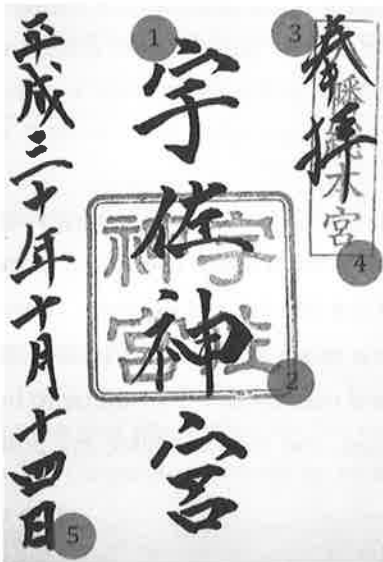 3
奉拝
八幡總本宮
4
1
宇佐神宮
宇佐
神宮
2
平成三十年十月十四日
5